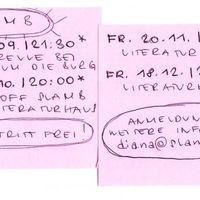 MB
09.|21:30 *
RELLE BEI
UM DIE BURG
10.|20:00 *
OFF SLAMB
ITERATURHAUS
TRITT FREI!
FR. 20.11.1
LITERATUR
FR. 18.12.
LITERATUR
ANMELDUN
WEITERE INF
diana@slam